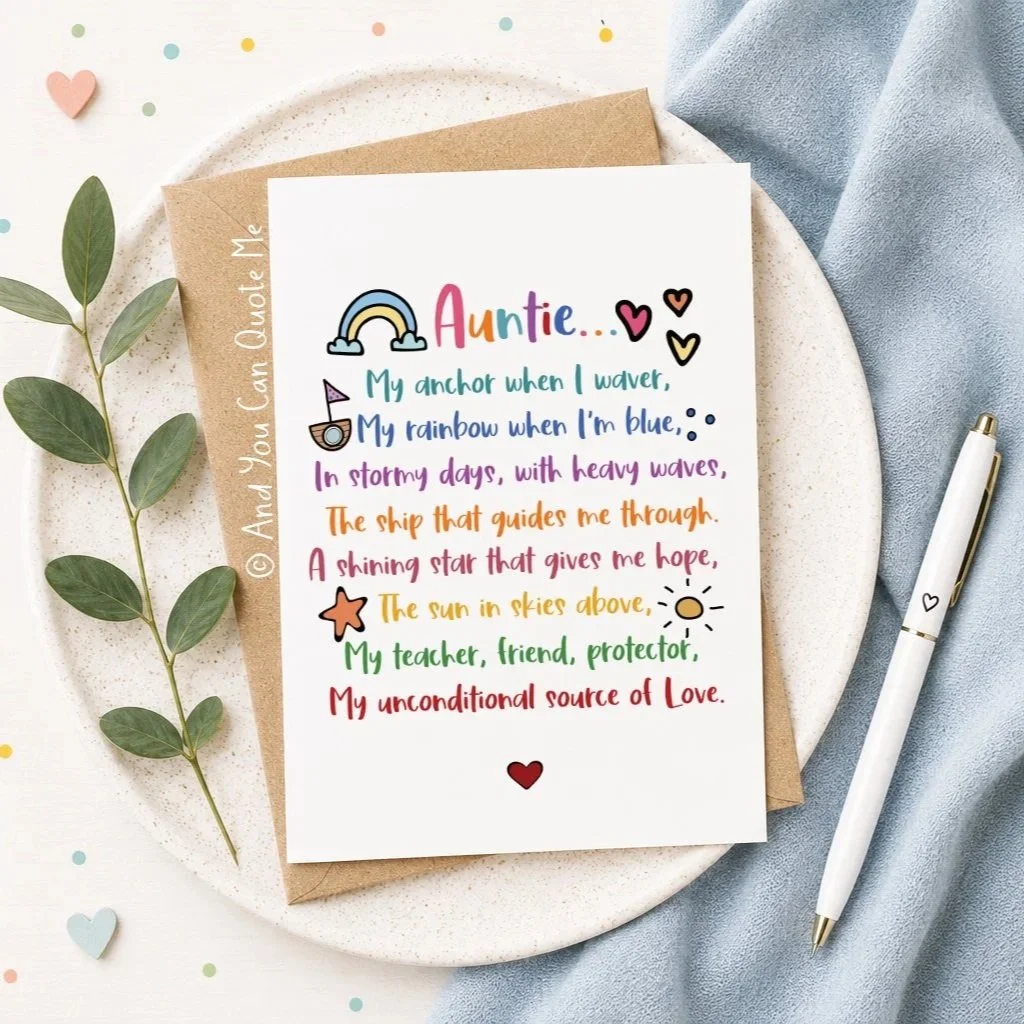 Auntie...
My anchor when I waver,
My rainbow when I'm blue,
In stormy days, with heavy waves,
The ship that guides me through.
A shining star that gives me hope,
The sun in skies above,
My teacher, friend, protector,
My unconditional source of Love.
© And You Can Quote Me